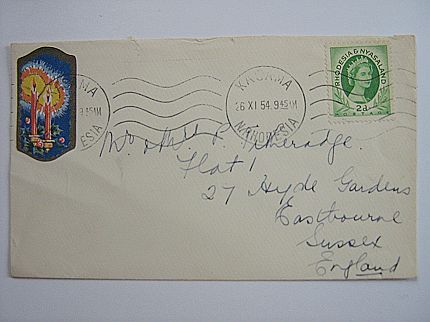 MA
9.45AM
ESIA
KASAMA
26 XI 54. 945AM
N. RHODESIA
RHODESIA & NYASALAND
2d.
POSTAGE
Flat 1
27 Hyde Gardens
Eastbourne
Sussex
England